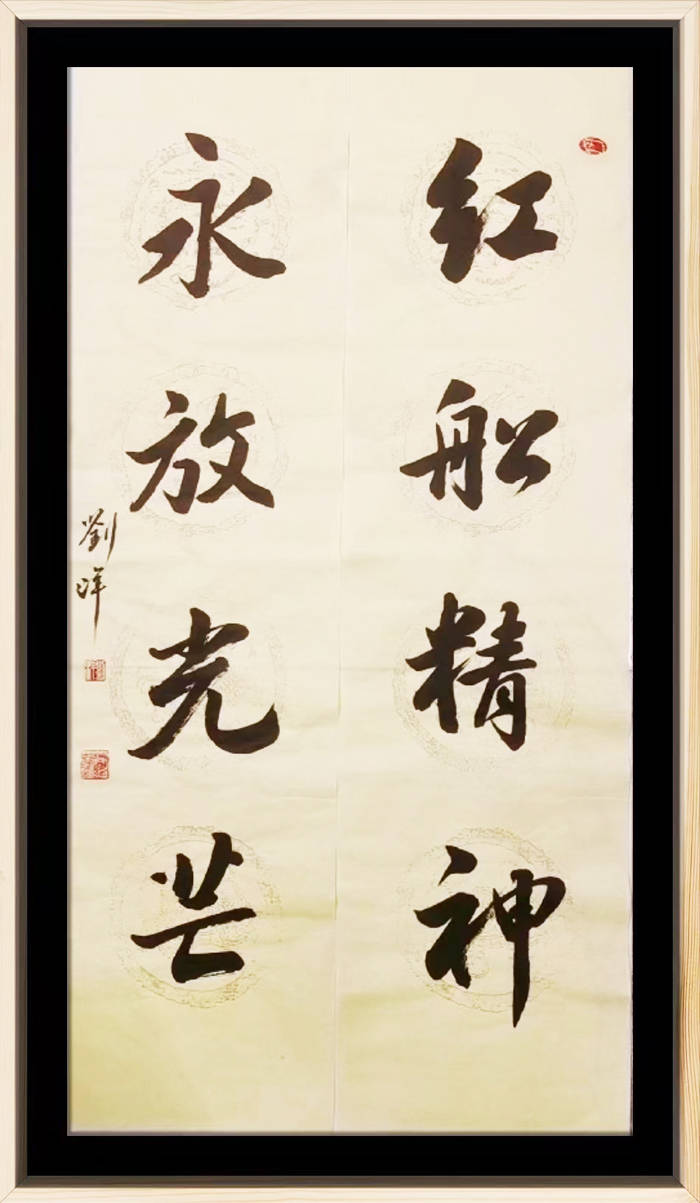 红船精神
永放光芒
劉洋